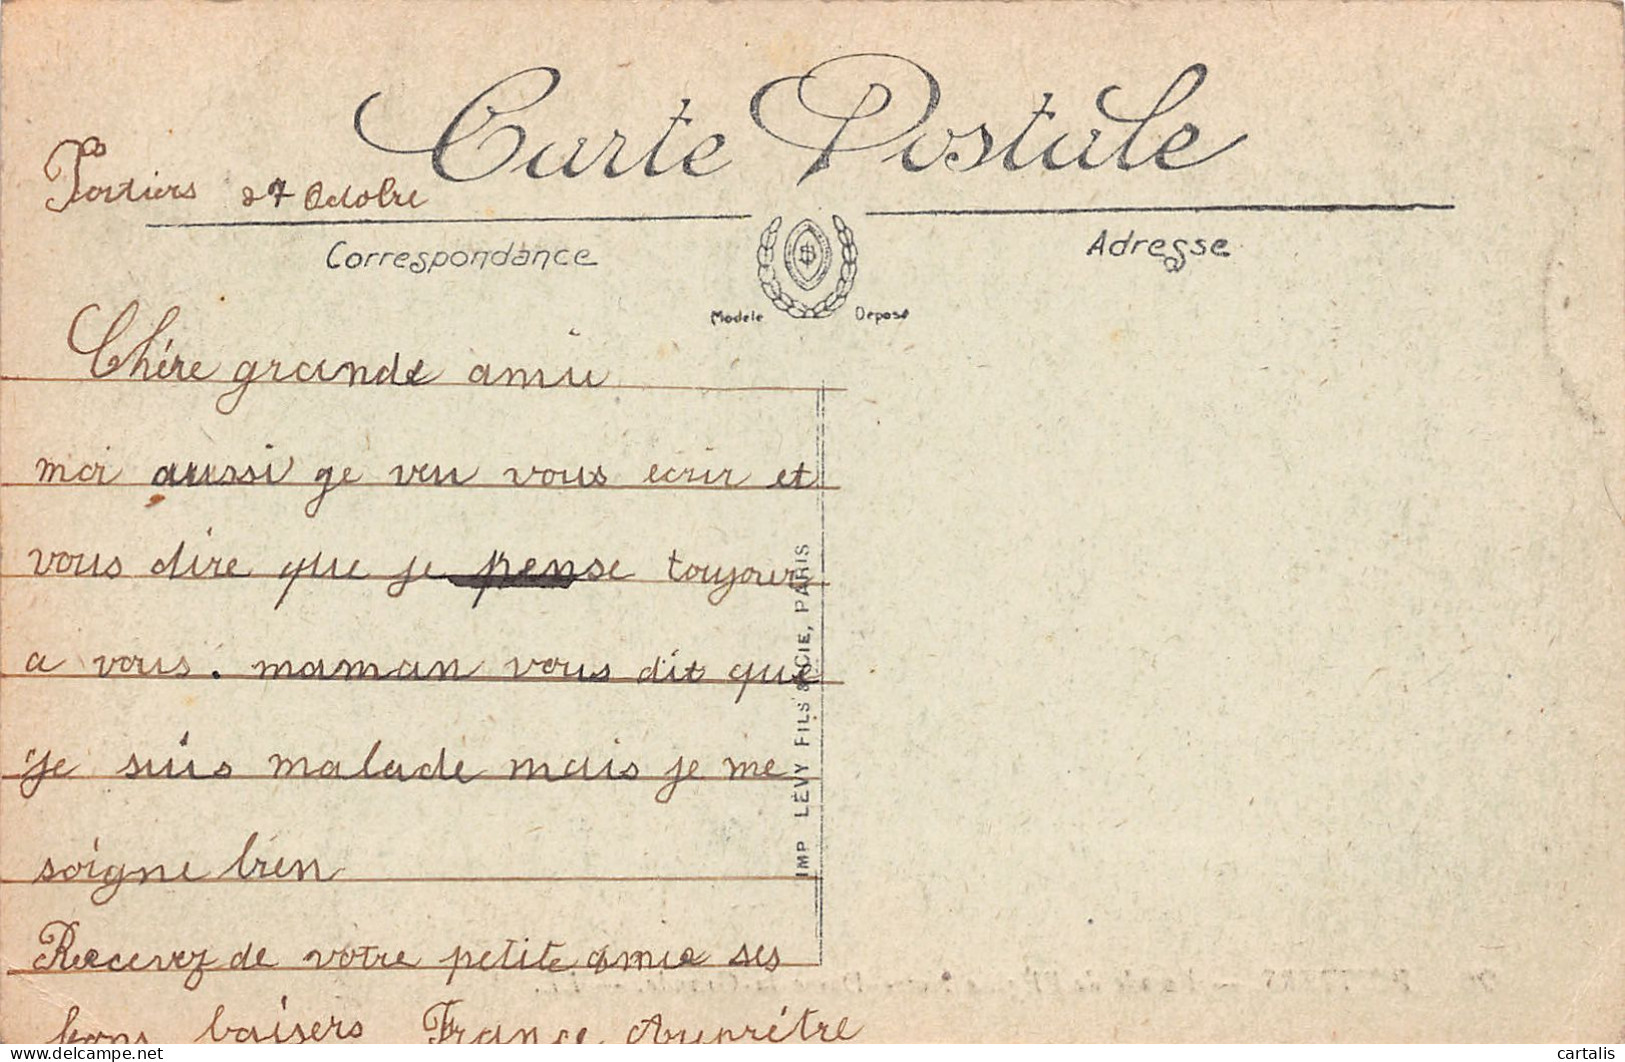 Carte Postale
Poitiers 27 Octobre
Correspondance
Adresse
Modèle Déposé
Chére grande amie
moi aussi ge veu vous ecrir et
vous dire que je pense toujours
a vous. maman vous dit que
je suis malade mais je me
soigne bien
Recevez de votre petite amie ses
bons baisers France Auprétre
IMP LÉVY FILS & CIE, PARIS
cartalis